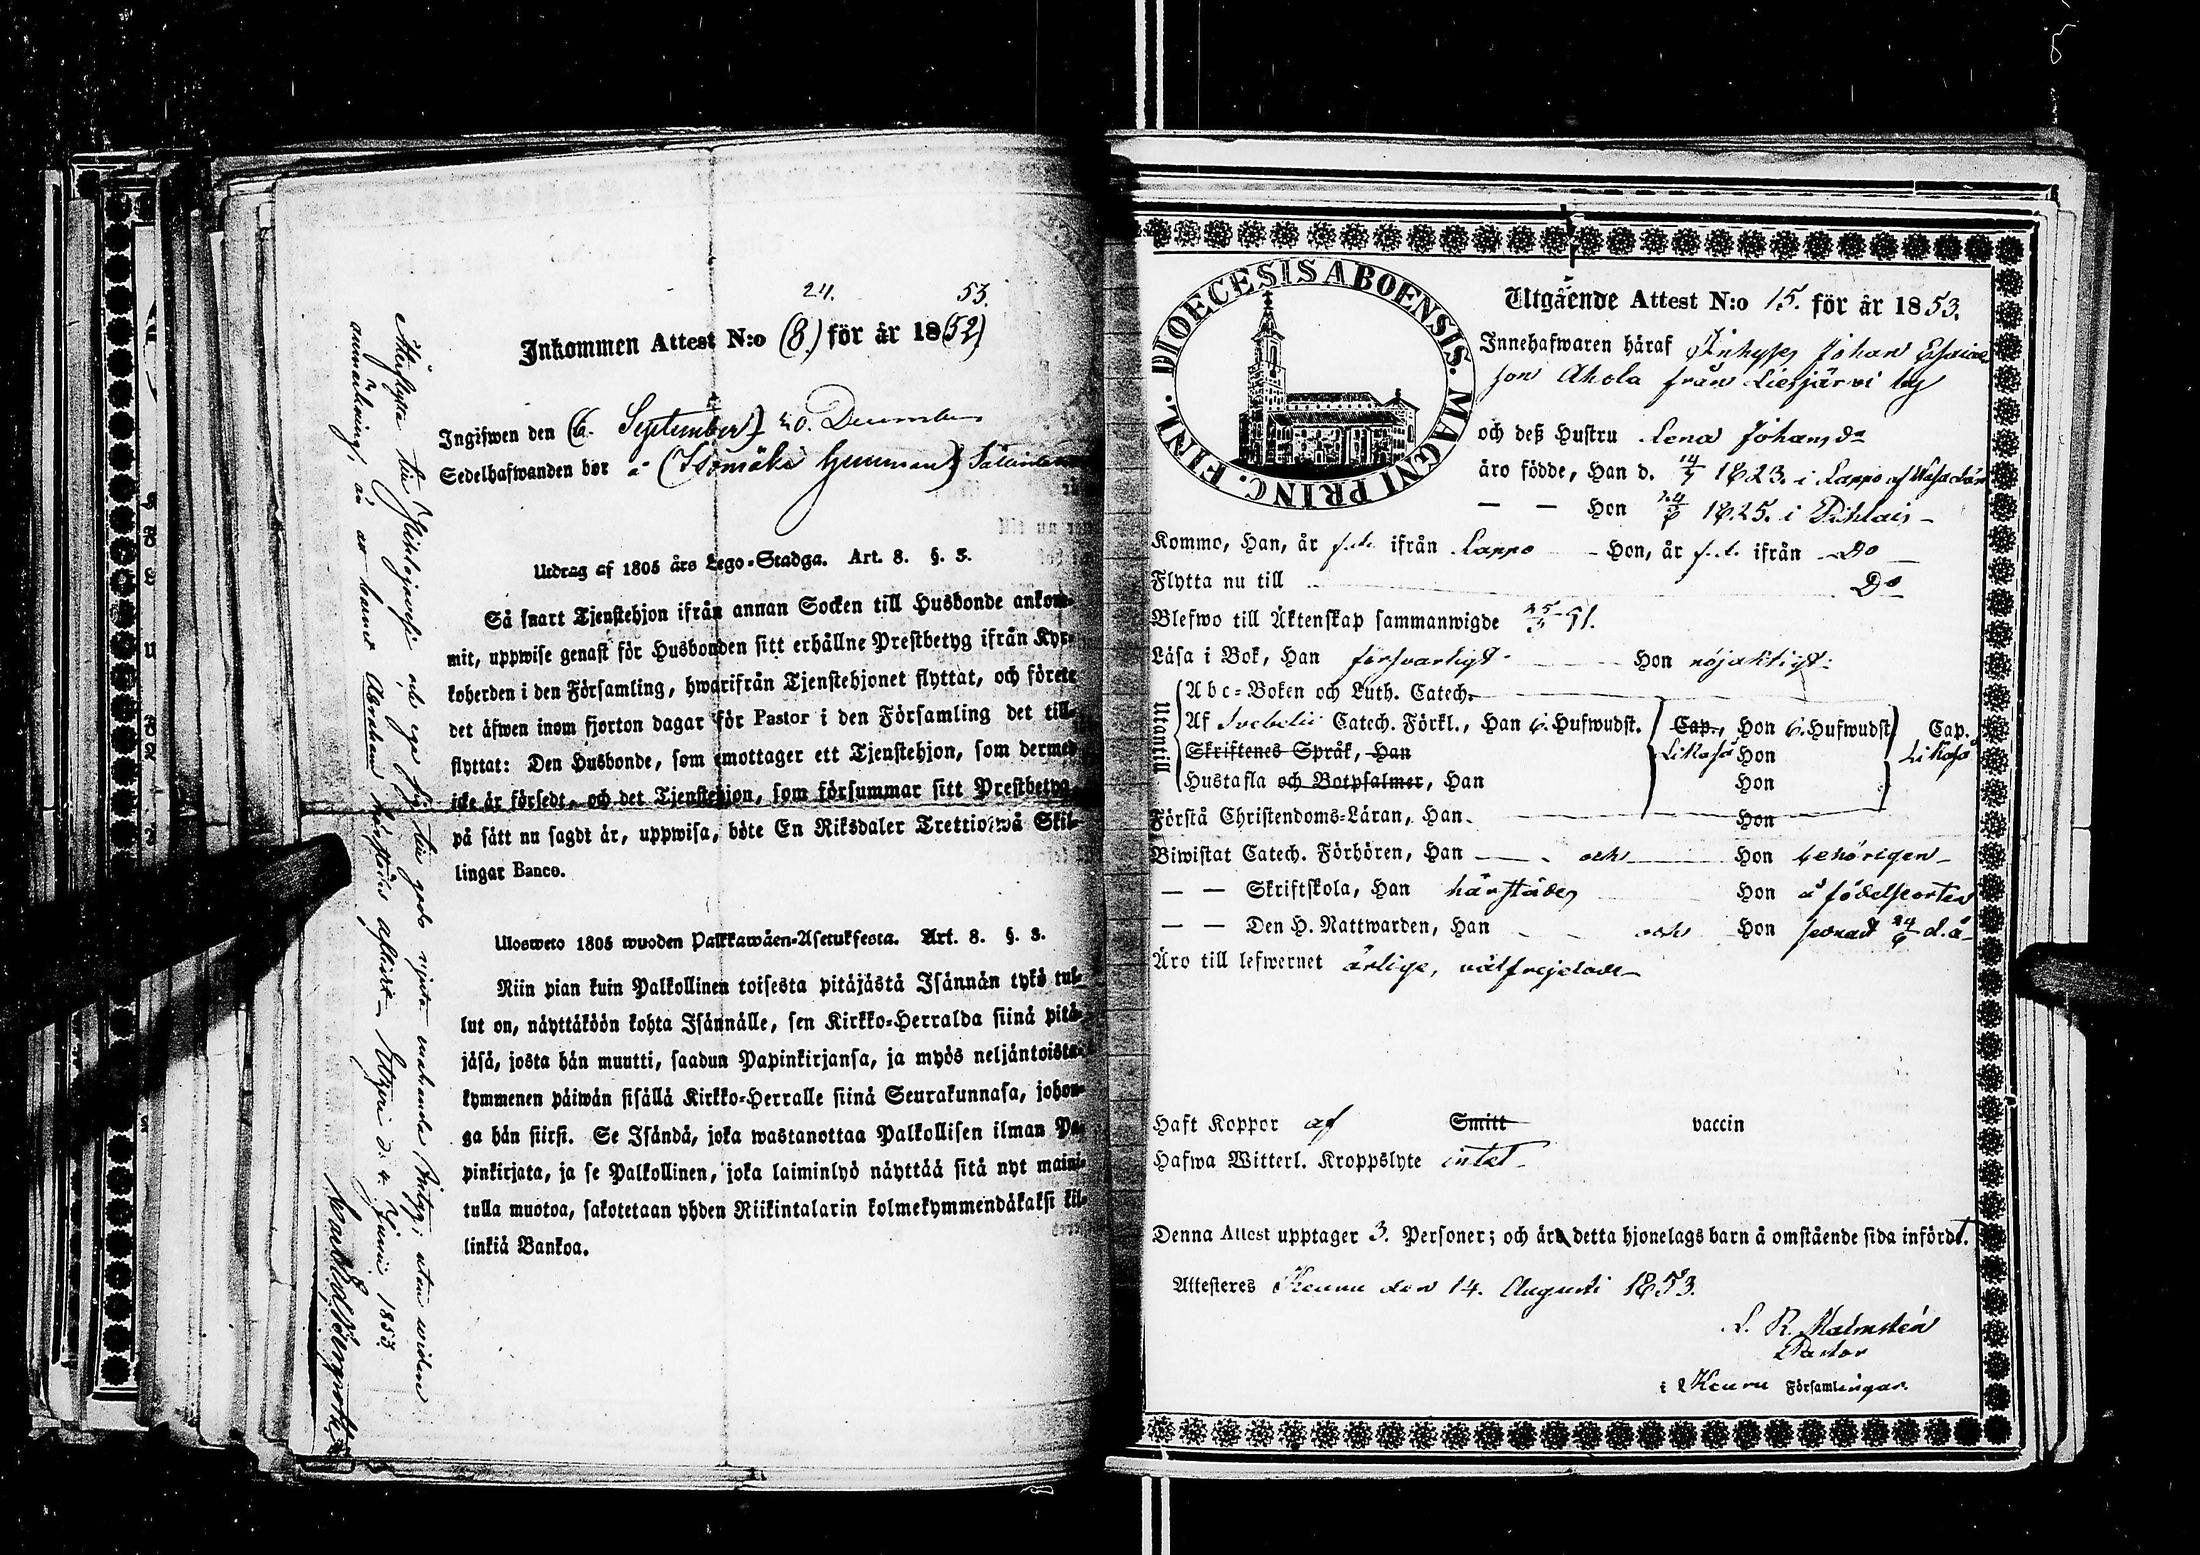 24. 53.
Inkommen Attest N:o (8.) för år 18(52)
Ingifwen den (6. September) 20. December
Sedelhafwanden bor å (Isomäki hemman)
Utdrag af 1805 års Lego-Stadga. Art. 8. §. 3.
Så snart Tjenstehjon ifrån annan Socken till Husbonde ankom-
mit, uppwise genast för Husbonden sitt erhållne Prestbetyg ifrån Kyr-
koherden i den Församling, hwarifrån Tjenstehjonet flyttat, och förete
det äfwen inom fjorton dagar för Pastor i den Församling det till-
flyttat: Den Husbonde, som emottager ett Tjenstehjon, som dermed
icke är försedt, och det Tjenstehjon, som försummar sitt Prestbetyg
på sätt nu sagdt är, uppwisa, böte En Riksdaler Trettiotwå Skil-
lingar Banco.
Ulosweto 1805 wuoden Palkkawäen-Asetuksesta. Art. 8. §. 3.
Niin pian kuin Palkollinen toisesta pitäjästä Isännän tykö tul-
lut on, näyttäköön kohta Isännälle, sen Kirkko-Herralda siinä pitä-
jäsä, josta hän muutti, saadun Papinkirjansa, ja myös neljäntoista-
kymmenen päiwän sisällä Kirkko-Herralle siinä Seurakunnasa, johon-
ga hän siirsi. Se Isändä, joka wastanottaa Palkollisen ilman Pa-
pinkirjata, ja se Palkollinen, joka laiminlyö näyttää sitä nyt maini-
tulla muotoa, sakotetaan yhden Riikintalarin kolmekymmendäkaksi kil-
linkiä Bankoa.
Afflytta till Pihlajavesi och eger sig till godo njuta enahanda betyg; utan widare
anmärkning, än att hans Abraham härstädes aflidit. Etzeri d. 4 Junii 1853.
DIOECESIS ABOENSIS. MAGNI PRINC. FINL.
Utgående Attest N:o 15. för år 1853.
Innehafwaren häraf Inhyses Johan Esaias
son Ahola från Liesjärvi by
och deß Hustru Lena Johansd:r
äro födde, Han d. 14/7 1823. i Lappo af Wasa län
— — Hon 24/6 1825. i Pihlais
Komme, Han, år s. å. ifrån Lappo Hon, år s. å. ifrån Do
Flytta nu till Do
Blefwo till Äktenskap sammanwigde 51.
Läsa i Bok, Han försvarligt Hon nöjaktigt.
Utantill
Abc-Boken och Luth. Catech.
Af Svebelii Catech. Förkl., Han 6. Hufwudst. Cap., Hon 6. Hufwudst. Cap.
Skriftenes Språk, Han Likaså Hon Likaså
Hustafla och Botpsalmer, Han Hon
Förstå Christendoms-Läran, Han Hon
Biwistat Catech. Förhören, Han och Hon behörigen
— — Skriftskola, Han härstädes Hon å födelseorten
— — Den H. Nattwarden, Han och Hon senast 24/6 d. å.
Äro till lefwernet ärlige, välfrejdade
Haft Koppor af Smitt vaccin
Hafwa Witterl. Kroppslyte intet
Denna Attest upptager 3. Personer; och äro detta hjonelags barn å omstående sida infördt.
Attesteres Keuru den 14. Augusti 1853.
L. R. Malmstén
Pastor
i Keuru Församlingar.